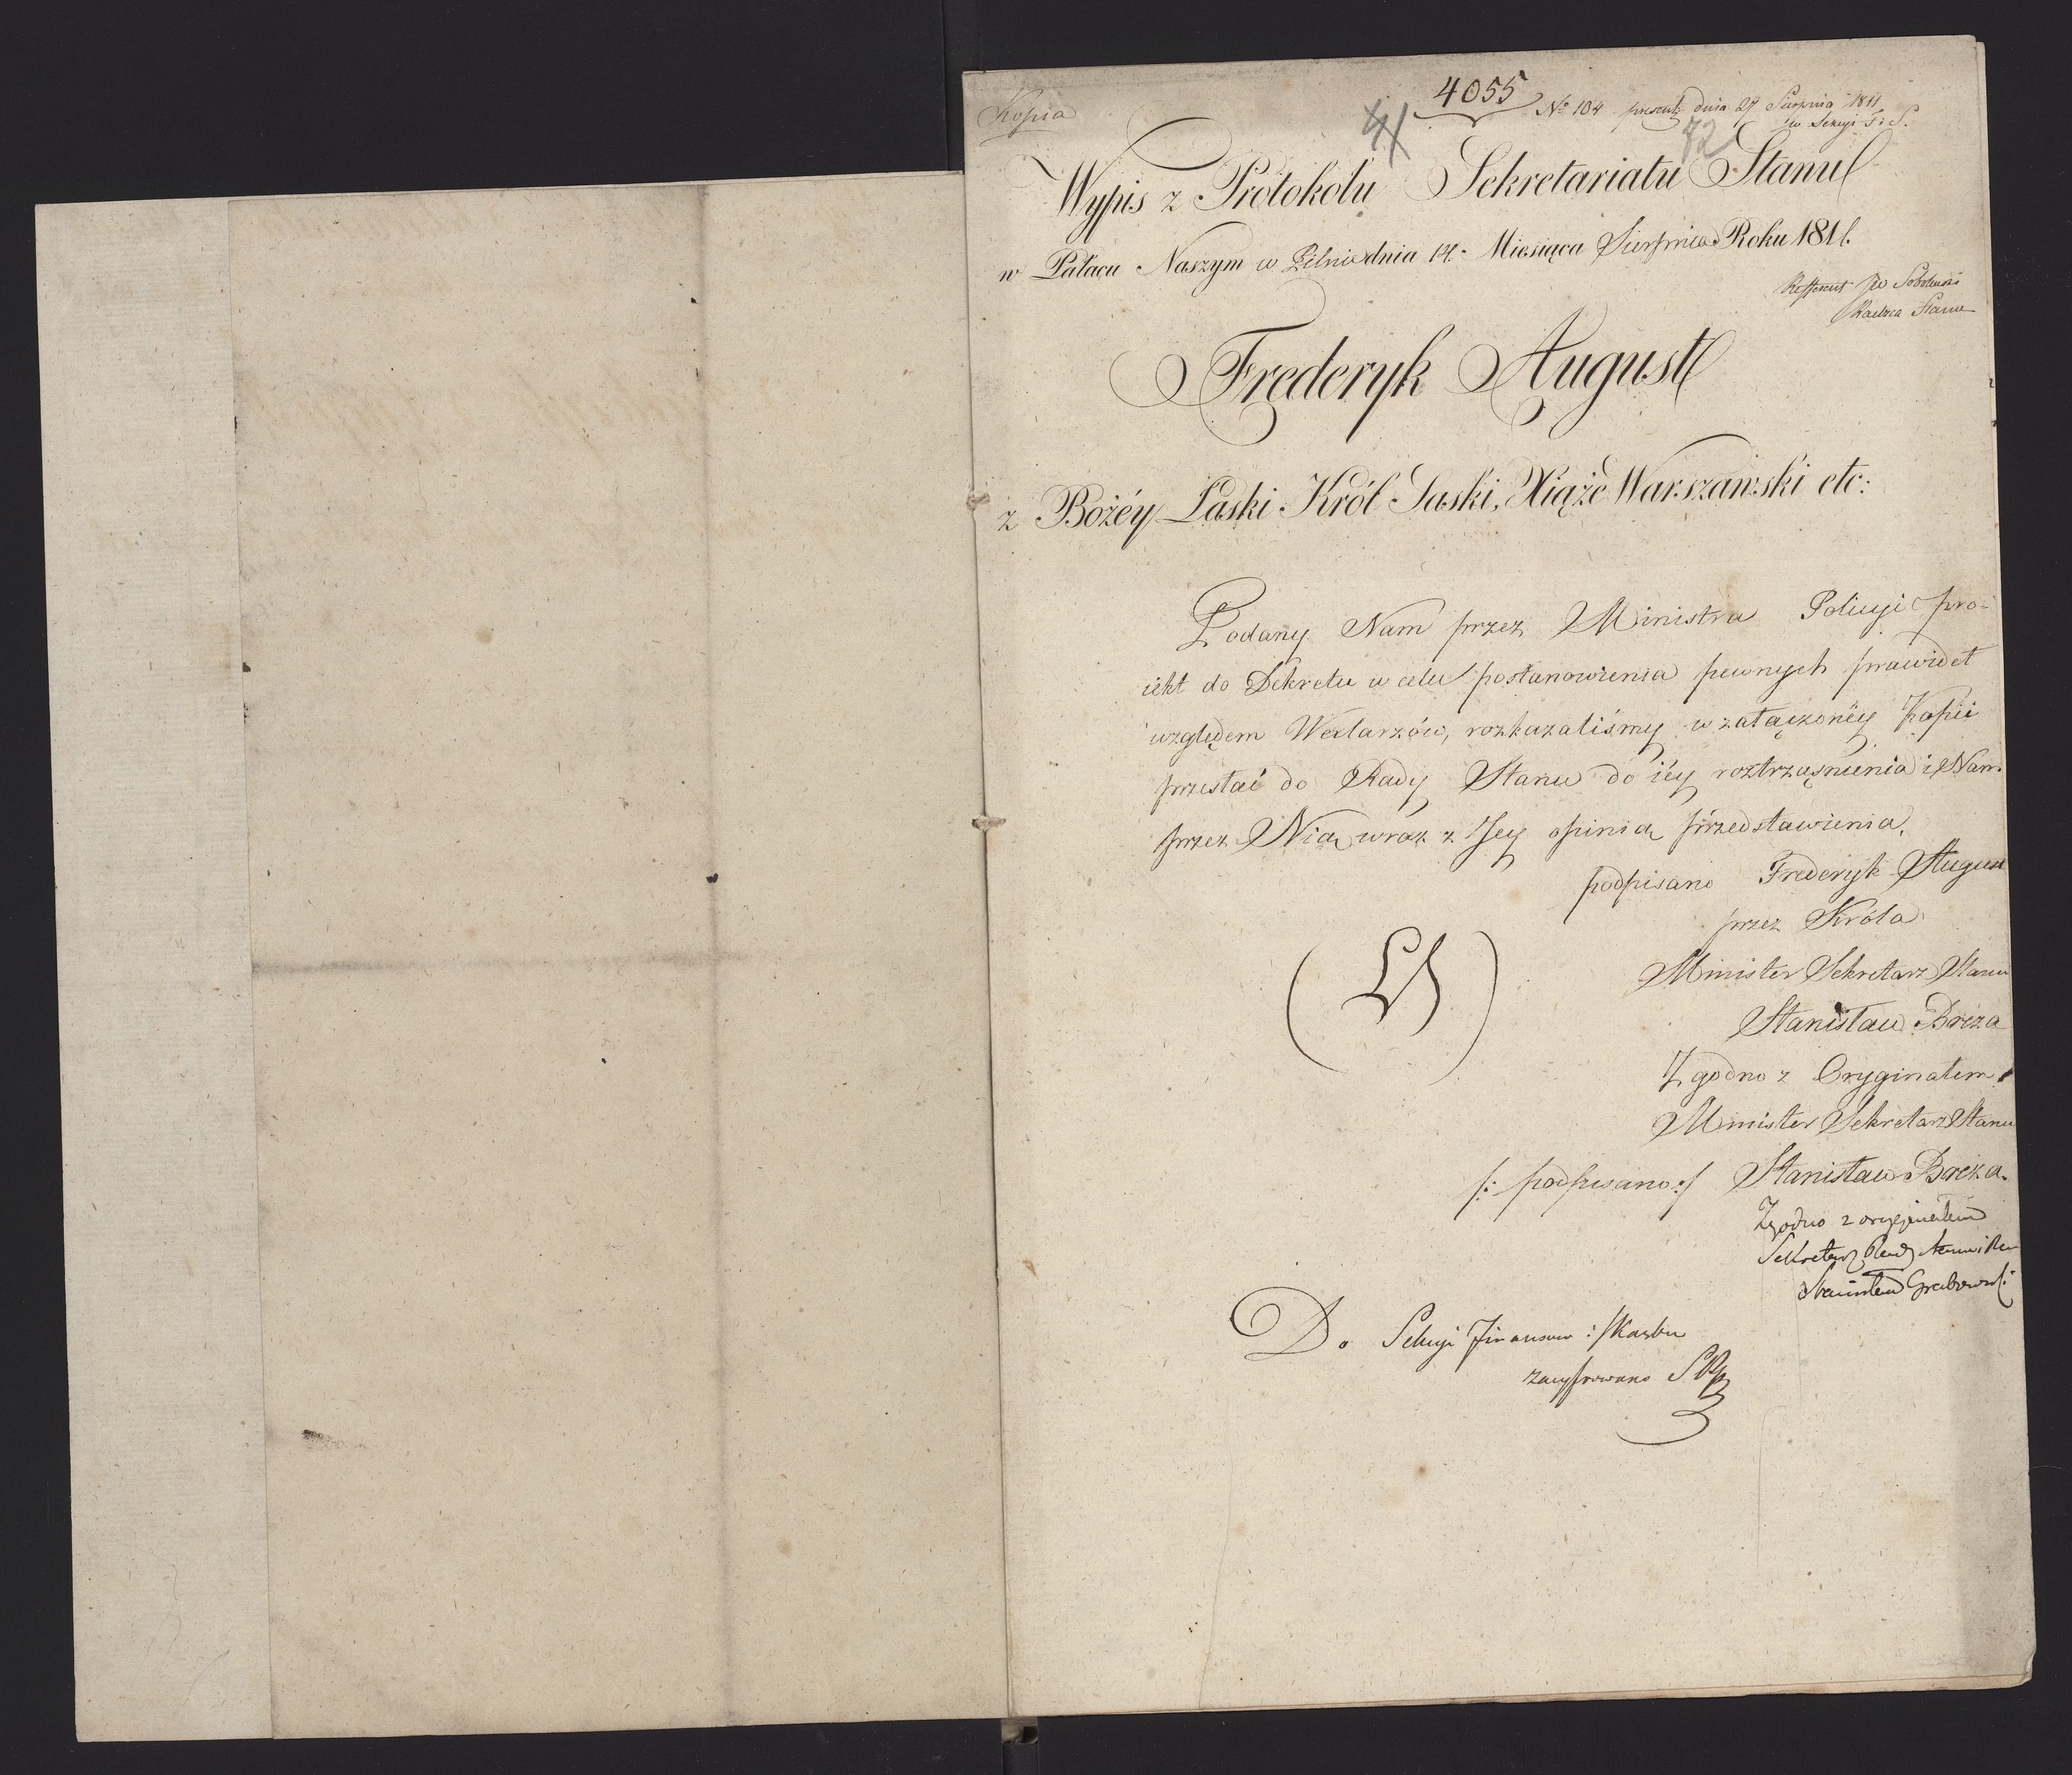 Kopia
4055
No 104 present: dnia 27 Sierpnia 1811
w Sekcyi F: i S.
41
72
Wypis z Protokółu Sekretariatu Stanu
w Pałacu Naszym w Pilnie dnia 14. Miesiąca Sierpnia Roku 1811.
Refferent JW Sobolewski
Radzca Stanu
Frederyk August
z Bożéy Łaski Król Saski, Xiąże Warszawski etc:
Podany Nam przez Ministra Policyi pro-
iekt do Dekretu w celu postanowienia pewnych prawideł
względem Wexlarzów, rozkazaliśmy w załączonéy Kopii
przesłać do Rady Stanu do iéy roztrząśnienia i Nam
przez Nią wraz z Jey opinią przedstawienia.
podpisano Frederyk August
przez Króla
Minister Sekretarz Stanu
(LS)
Stanisław Breza
Zgodno z Oryginałem
Minister Sekretarz Stanu
/: podpisano :/ Stanisław Breza.
Zgodno z oryginałem
Sekretarz Rady Stanu i
Stanisław Grabowski
Do Sekcyi Finansow i Skarbu
zacyfrowano